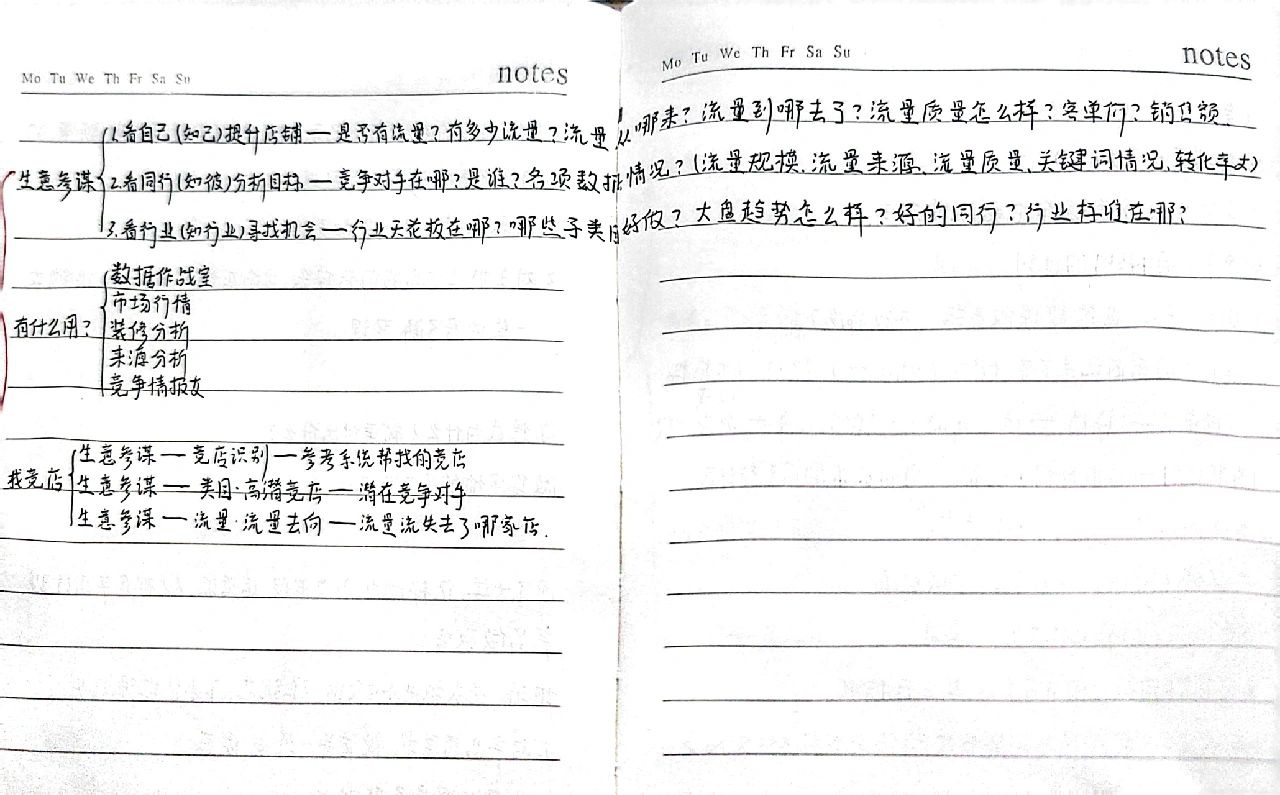 Mo Tu We Th Fr Sa Su notes
Mo Tu We Th Fr Sa Su notes
生意参谋
1.看自己(知己)提升店铺—是否有流量?有多少流量?流量从哪来?流量到哪去了?流量质量怎么样?客单价?销售额
2.看同行(知彼)分析目标—竞争对手在哪?是谁?各项数据情况?(流量规模、流量来源、流量质量、关键词情况、转化率大)
3.看行业(知行业)寻找机会—行业天花板在哪?哪些子类目好做?大盘趋势怎么样?好的同行?行业标准在哪?
有什么用?
数据作战室
市场行情
装修分析
来源分析
竞争情报
找竞店
生意参谋—竞店识别—参考系统帮找的竞店
生意参谋—类目·高潜竞店—潜在竞争对手
生意参谋—流量·流量去向—流量流失去了哪家店.